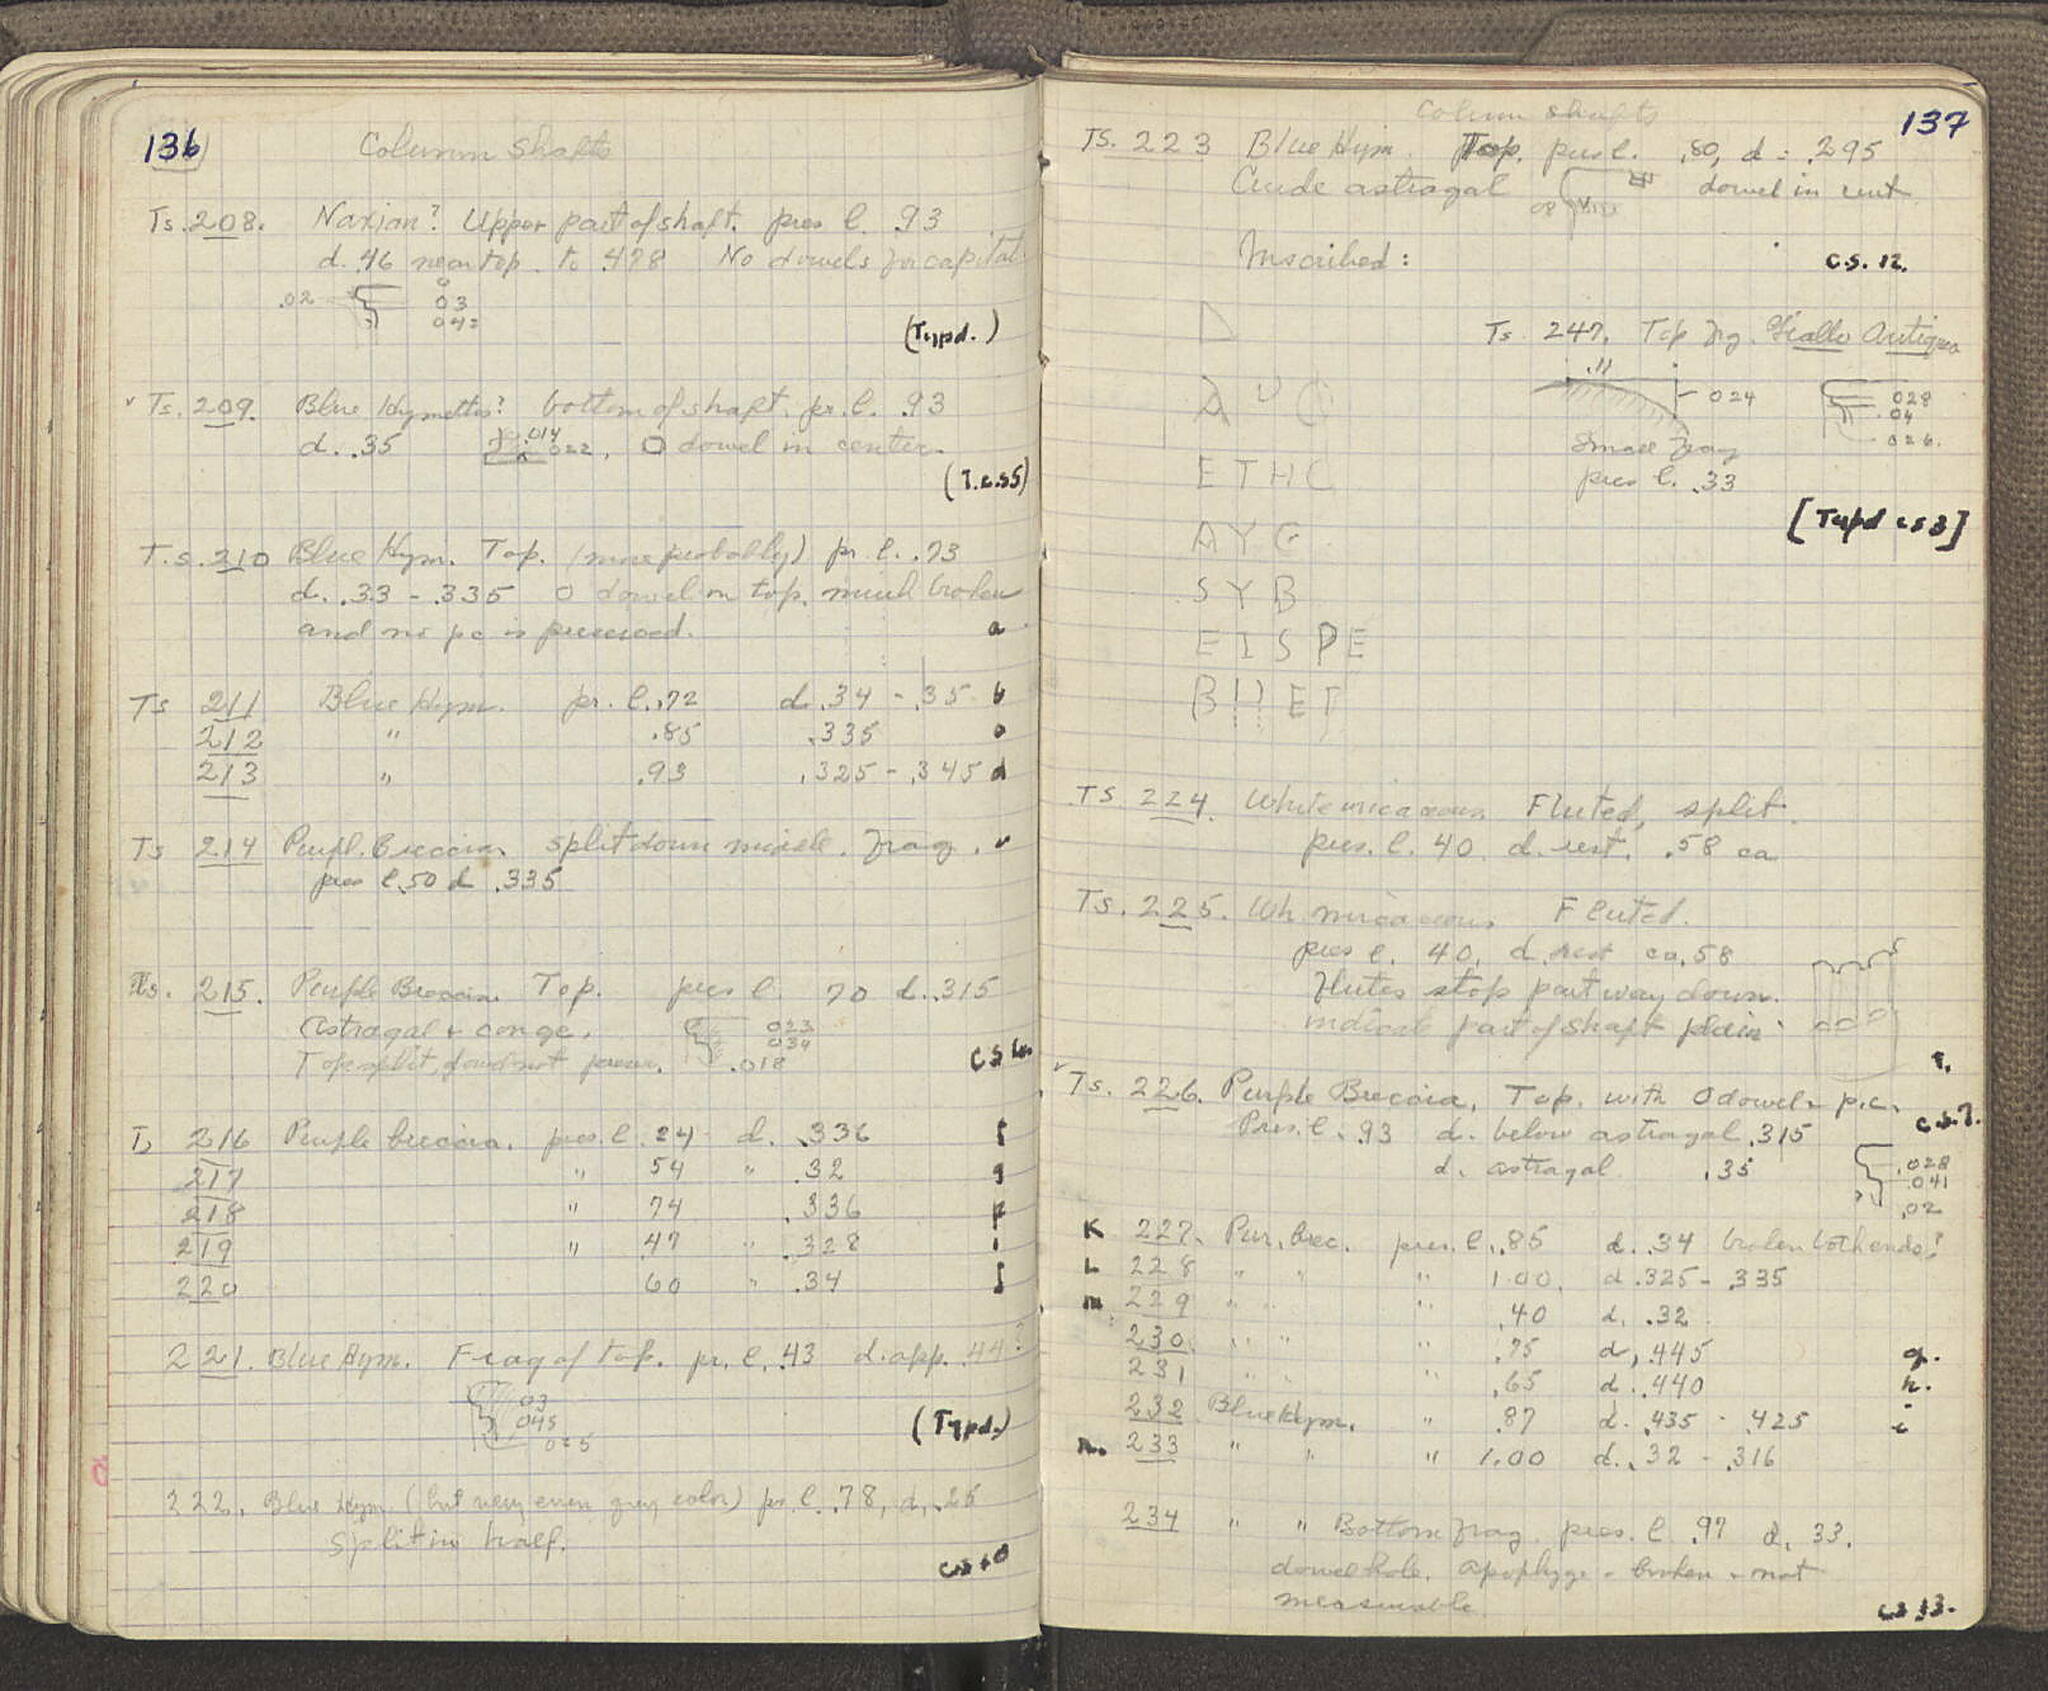 136
Column Shafts
Ts. 208. Naxian? Upper part of shaft. pres l. .93
d. .46 near top to .478 No dowels for capital.
.02 03
042
(Typd.)
Ts. 209. Blue Hymettos? bottom of shaft. pr. l. .93
d. .35 .014 022, O dowel in center.
(T.c.s5)
T.s. 210 Blue Hym. Top. (more probably) pr. l. .73
d. .33 - .335 O dowel on top. much broken
and no pc is preserved. a
Ts 211 Blue Hym. pr. l. .72 d. .34 - .35 b
212 " .85 .335
213 " .93 .325 - .345 d
Ts 214 Purpl. Breccia. split down middle. frag.
pres l .50 d .335
Ts. 215. Purple Breccia. Top. pres l. 70 d. .315
Astragal + conge. 023
034
Top split, dowel not preserv. .018
cs
Ts 216 Purple breccia. pres. l .24 d. .336 f
217 " 54 " .32 g
218 " 74 .336 p
219 " 47 " .328 i
220 60 " .34 j
221. Blue Hym. Frag of top. pr. l. .43 d. app. .44?
03
045
025
(Typd.)
222. Blue Hym. (but very even grey color) pr. l. .78, d. .25
split in half.
cs 10
137
Column shafts
TS. 223 Blue Hym. Top. pres l. .80, d = .295
Crude astragal 08 dowel in cent
Inscribed:
c.s. 12.
ETHC
AYG
SYB
EISPE
Ts. 247. Top frg. Giallo Antiquo
.11
024 028
.04
026.
Small frag
pres l. .33
[Typd cs 3]
TS. 224. White micaceous Fluted, split.
pres. l. 40. d. rest. .58 ca
Ts. 225. Wh. micaceous Fluted.
pres l. 40, d. rest ca .58
Flutes stop part way down.
indicate part of shaft plain.
T.
Ts. 226. Purple Breccia, Top. with O dowel + p.c.
c.s.7.
Pres. l. .93 d. below astragal .315
d. astragal .35 .028
.041
.02
K 227. Pur. brec. pres. l. .85 d. .34 broken both ends?
L 228 " " " 1.00. d .325 - .335
m 229 " " " .40 d. .32
230 " " " .75 d, .445 g.
231 " " " .65 d. .440 h.
232 Blue Hym. " .87 d. .435 - .425 i
n. 233 " " " 1.00 d. .32 - .316
234 " " Bottom frag. pres. l .97 d. 33.
dowel hole. apophyge - broken + not
measurable
cs 13.